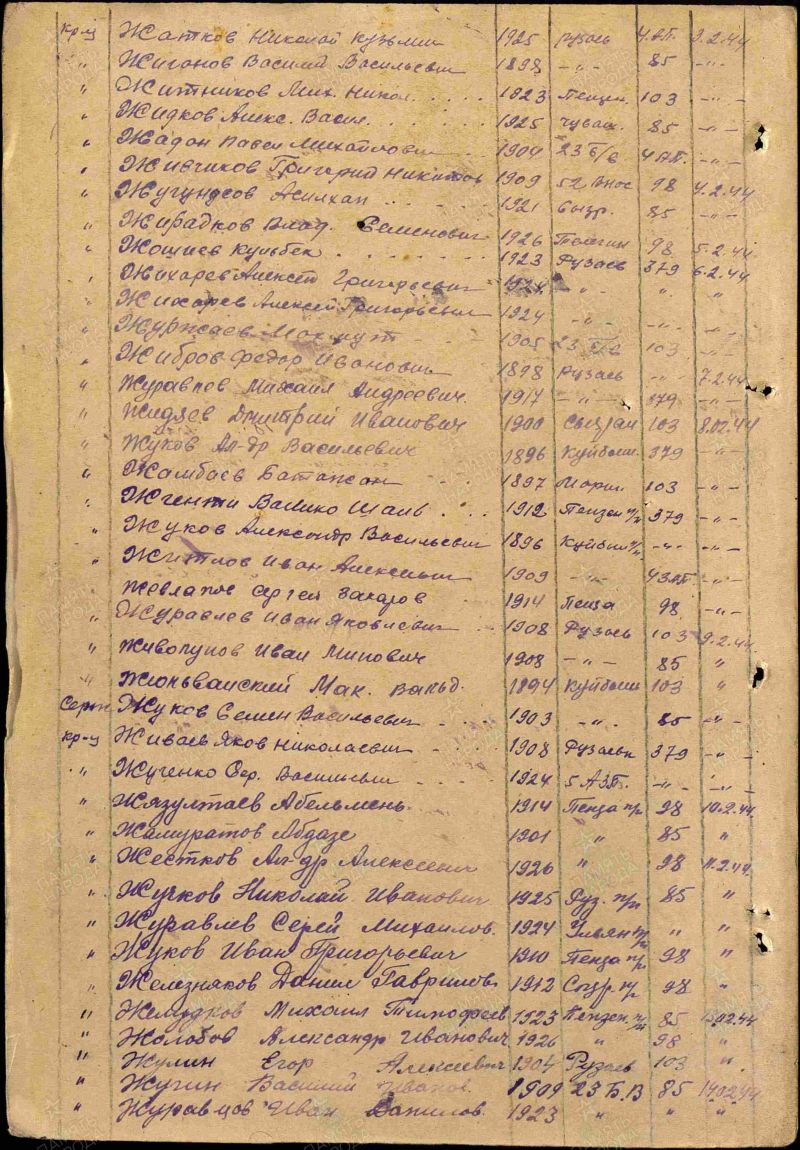 кр-ц Жатков Николай Кузьмич 1925 рузаев 4.АП. 3.2.44
" Жиганов Василий Васильевич 1898 -"- 85 -"-
" Житников Мих. Никол. 1923 Пензен. 103 -"-
" Жидков Алекс. Васил. 1925 чуваш. 85 -"-
" Жадан Павел Михайлович 1904 23 б/в 4АП. -"-
" Живчиков Григорий Никитов 1909 52 Внос 98 4.2.44
" Жугундсов Асилхан 1921 сызр. 85 -"-
" Жирадков Влад. Семенович 1926 Пензен 98 5.2.44
" Жошиев Кульбек 1923 Рузаев 379 6.2.44
" Жихарев Алексей Григорьевич 1924 -"- " "
" Жихарев Алексей Григорьевич 1924 -"- -"- "
" Журжаев Максут 1905 23 б/в 103 -"-
" Жибров Федор Иванович 1898 Рузаев -"- 7.2.44
" Журавлев Михаил Андреевич 1917 -"- 379 -"-
" Жидяев Дмитрий Иванович 1900 Сызран 103 8.02.44
" Жуков Ал-др Васильевич 1896 Куйбыш. 379 -"-
" Жамбаев Батажан 1897 Марш. 103 -"-
" Жгенти Валико Шалв 1912 Пензен п/п 379 -"-
" Жуков Александр Васильевич 1896 Куйбыш п/п -"- -"-
" Житлов Иван Алексеевич 1909 -"- 43АП. -"-
Жевлапов Сергей Захаров 1914 Пенза 98 -"-
" Журавлев Иван Яковлевич 1908 Рузаев 103 9.2.44
" Живопупов Иван Минович 1908 -"- 85 "
" Жюльванский Мак. Вальд. 1894 Куйбыш 103 "
Серж Жуков Семен Васильевич 1903 -"- 85 -"-
кр-ц Живаев Яков Николаевич 1908 Рузаевк 379 -"-
" Жученко Сер. Васильевич 1924 5 АЗП. -"- -"-
" Жязултаев Абельмень 1914 Пенза п/п 98 10.2.44
" Жамуратов Абдазе 1901 " 85 "
" Жестков Ал-др Алексеевич 1926 " 98 11.2.44
" Жучков Николай Иванович 1925 Руз. п/п 85 "
" Журавлев Серей Михайлов. 1924 Ульян п/п " "
" Жуков Иван Григорьевич 1910 Пенза п/п 98 "
" Железняков Данил Гаврилов. 1912 Сызр. п/п 98 "
" Желудков Михаил Тимофеев 1923 Пензен. п/п 85 13.02.44
" Жолобов Александр Иванович 1926 " 98 "
" Жулин Егор Алексеевич 1904 Рузаев 103 "
" Жучин Василий Иванов. 1909 23 Б.В 85 14.02.44
" Журавцов Иван Данилов. 1923 " " "